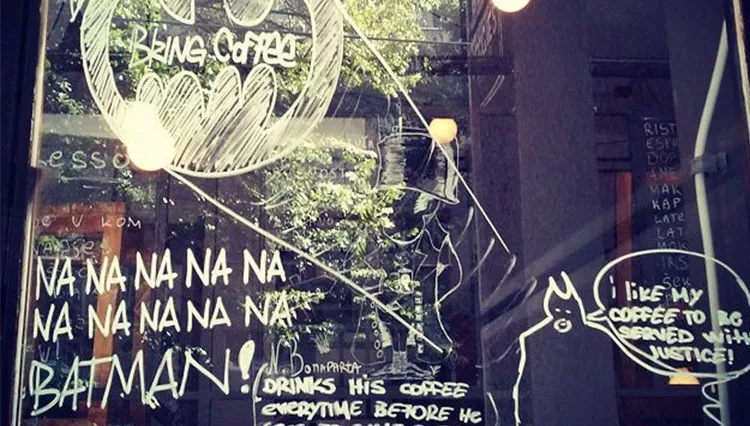 B'KING COFFEE
esso
U KOM
NA NA NA NA NA
NA NA NA NA NA
BATMAN!
N. BONAPARTA
DRINKS HIS COFFEE
EVERYTIME BEFORE HE
i LIKE MY
COFFEE TO BE
SERVED WITH
JUSTICE!
RIST
ESPR
DOP
MAK
KAP
LATE
LAT